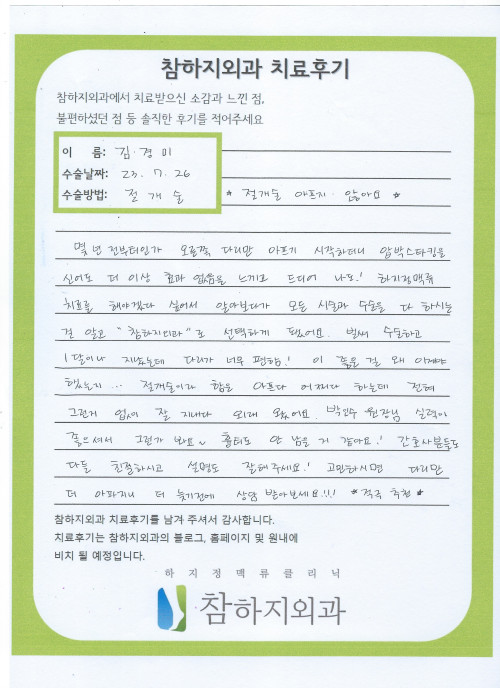 참하지외과 치료후기
참하지외과에서 치료받으신 소감과 느낀 점,
불편하셨던 점 등 솔직한 후기를 적어주세요
이 름: 김·경 미
수술날짜: 23. 7. 26
수술방법: 절 개 술
* 절개술 아프지 않아요 *
몇 년 전부터인가 오른쪽 다리만 아프기 시작하더니 압박스타킹을
신어도 더 이상 효과 없음을 느끼고 드디어 나도! 하지정맥류
치료를 해야겠다 싶어서 알아보다가 모든 시술과 수술을 다 하시는
걸 알고 "참하지외과"로 선택하게 됐어요. 벌써 수술하고
1달이나 지났는데 다리가 너무 편함! 이 좋은 걸 왜 이제야
했는지... 절개술이라 함은 아프다 어쩌다 하는데 전혀
그런거 없이 잘 지내다 외래 왔어요. 박근수 원장님 실력이
좋으셔서 그런가 봐요~ 흉터도 안 남은 거 같아요! 간호사분들도
다들 친절하시고 설명도 잘해주세요! 고민하시면 다리만
더 아파지니 더 늦기전에 상담 받아보세요!!! *적극 추천*
참하지외과 치료후기를 남겨 주셔서 감사합니다.
치료후기는 참하지외과의 블로그, 홈페이지 및 원내에
비치 될 예정입니다.
하 지 정 맥 류 클 리 닉
참하지외과